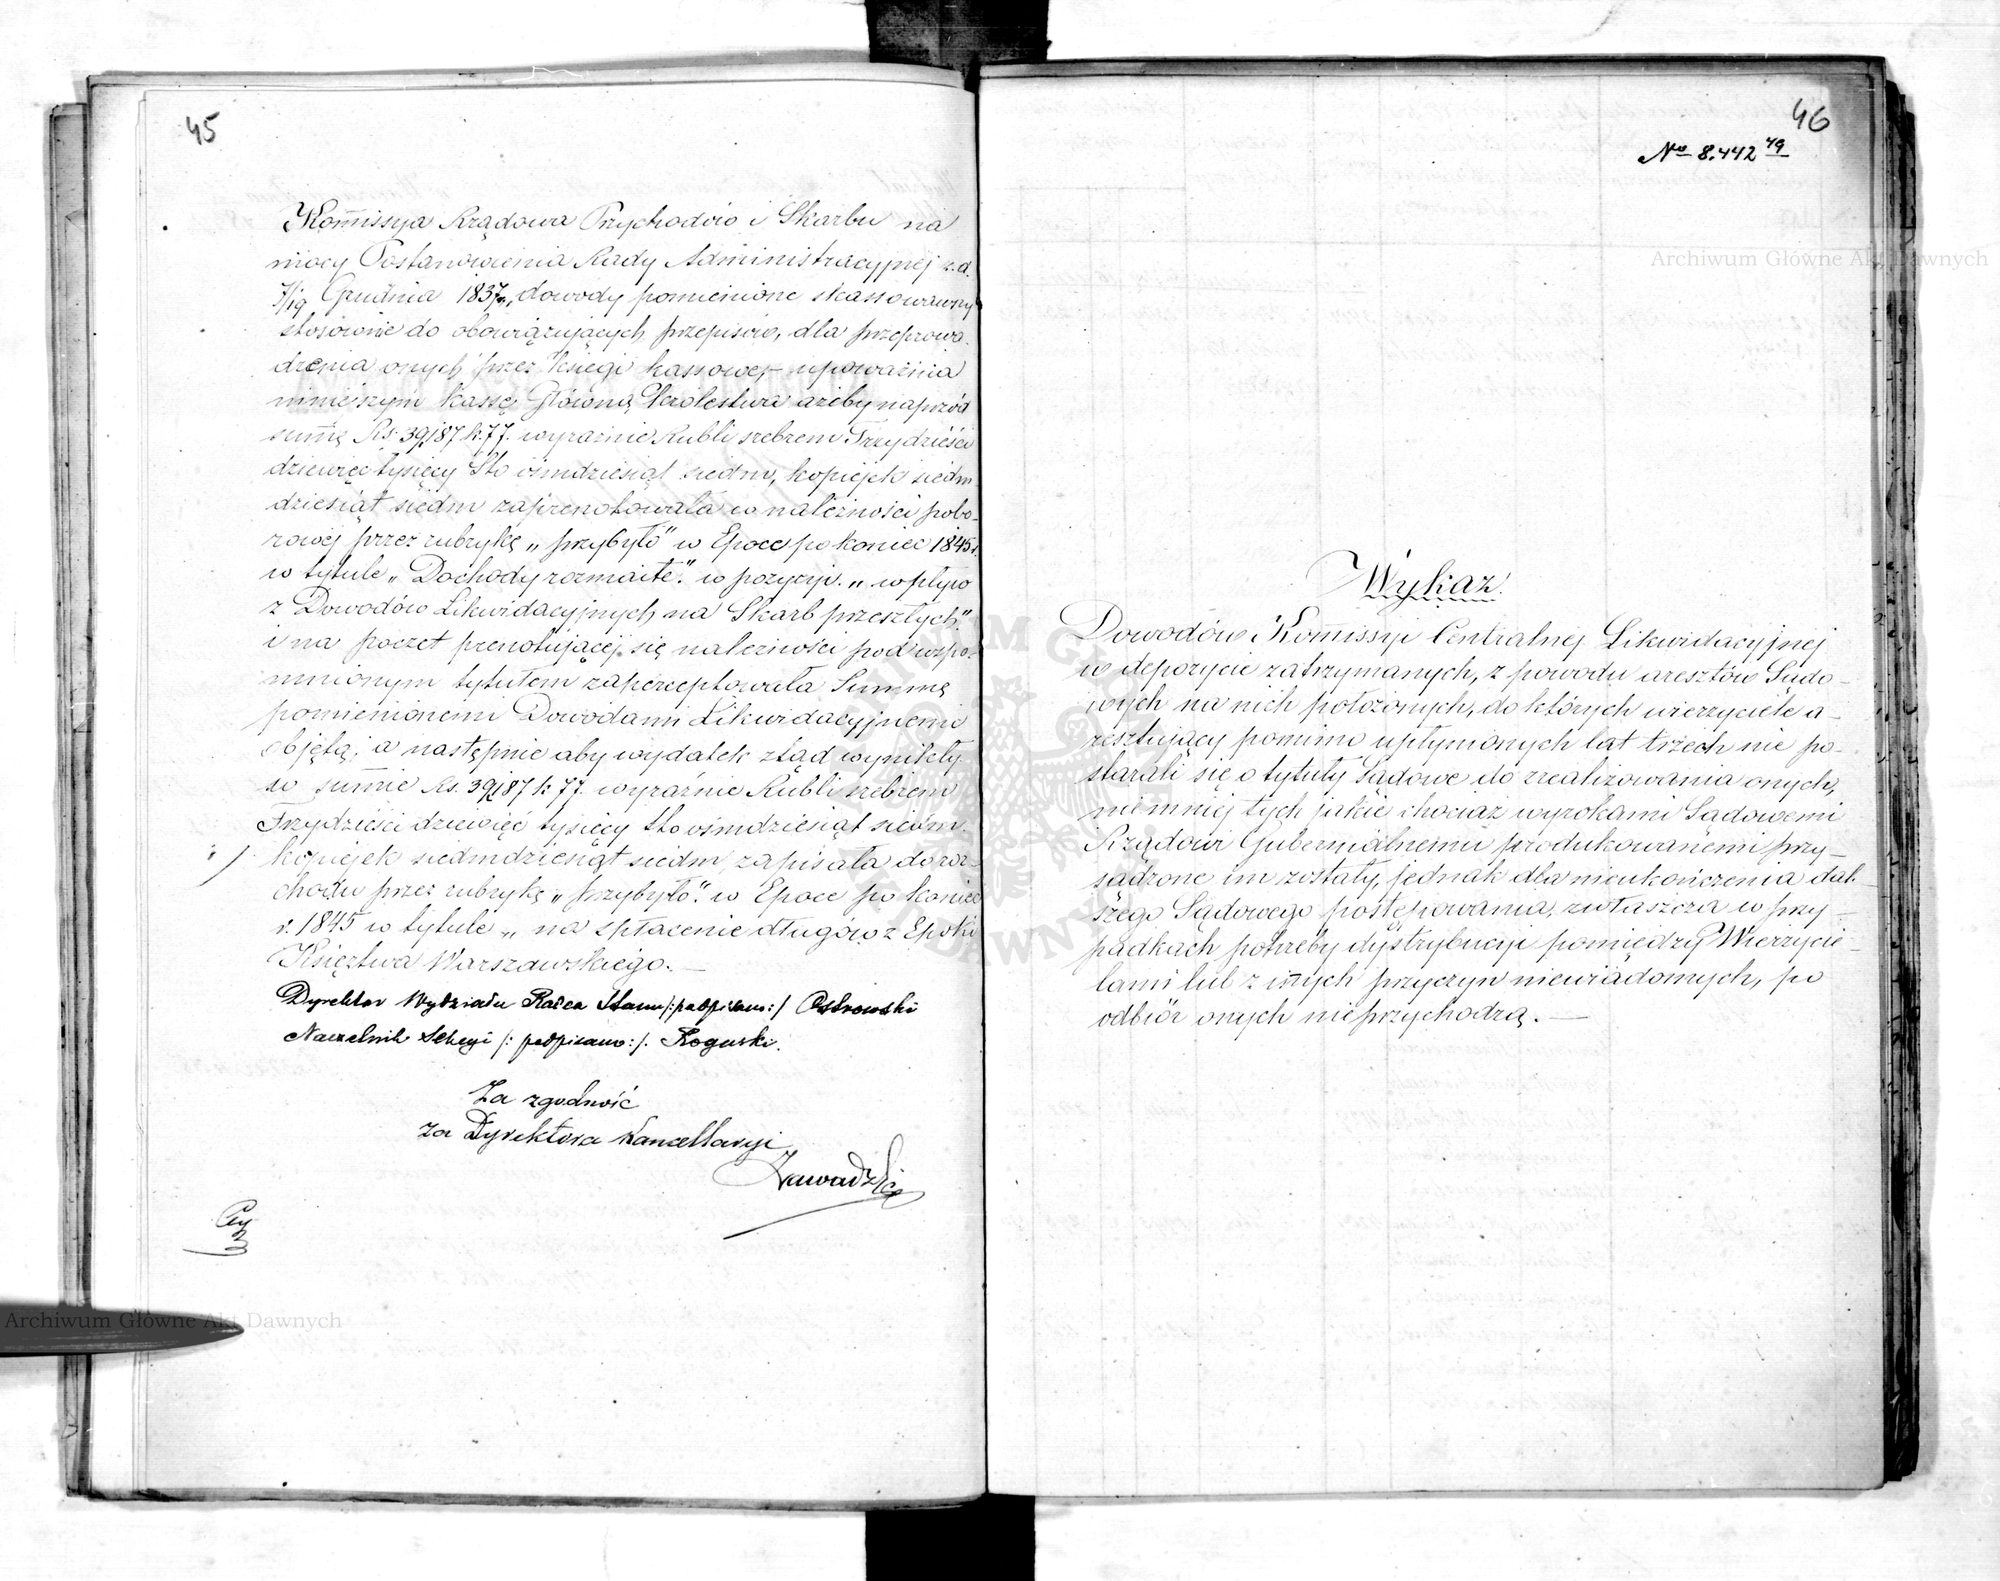 45
Kom̅issya Rządowa Przychodów i Skarbu na
mocy Postanowienia Rady Administracyjnej z d.
7/19 Grudnia 1837 r., dowody pomienione skassowawszy
stosownie do obowiązujących przepisów, dla przeprowa-
dzenia onych przez księgi kassowe,- upoważnia
niniejszym Kassę Główną Królestwa ażeby naprzód
sum̅ę Rs. 39,187 k. 77. wyraźnie Rubli srebrem Trzydzieści
dziewięć tysięcy Sto ośmdziesiąt siedm, kopiejek siedm-
dziesiąt siedm zaprenotowała w należności pobo-
rowej przez rubrykę „przybyło" w Epoce po koniec 1845 r.
w tytule „Dochody rozmaite". w pozycyi. „wpływ
z Dowodów Likwidacyjnych na Skarb przeszłych".
i na poczet prenotującej się należności pod wspo-
mnionym tytułem zaperceptowała Summę
pomienionemi Dowodami Likwidacyjnemi
objętą; a następnie aby wydatek ztąd wynikły
w sum̅ie Rs. 39,187 k. 77. wyraźnie Rubli srebrem
Trzydzieści dziewięć tysięcy sto ośmdziesiąt siedm.
kopiejek siedmdziesiąt siedm, zapisała do roz-
chodu przez rubrykę „przybyło". w Epoce po koniec
r. 1845 w tytule „na spłacenie długów z Epoki
Księztwa Warszawskiego. —
Dyrektor Wydziału Radca Stanu /:podpisano:/ Ostrowski
Naczelnik Sekcyi /: podpisano:/. Rogurski.
Za zgodność
za Dyrektora Kancellaryi
Zawadzki
46
No 8.442 49
Wykaz.
Dowodów Kom̅issyi Centralnej Likwidacyjnej
w depozycie zatrzymanych, z powodu aresztów Sądo-
wych na nich położonych, do których wierzyciele a-
resztujący pomimo upłynionych lat trzech nie po-
starali się o tytuły Sądowe do zrealizowania onych,
niemniej tych jakie chociaż wyrokami Sądowemi
Rządowi Gubernialnemu produkowanemi przy-
sądzone im zostały, jednak dla nieukończenia dal-
szego Sądowego postępowania, zwłaszcza w przy-
padkach potrzeby dystrybucyi pomiędzy Wierzycie-
lami lub z in̅ych przyczyn niewiadomych, po
odbiór onych nieprzychodzą. —
Archiwum Główne Akt Dawnych
Archiwum Główne Akt Dawnych